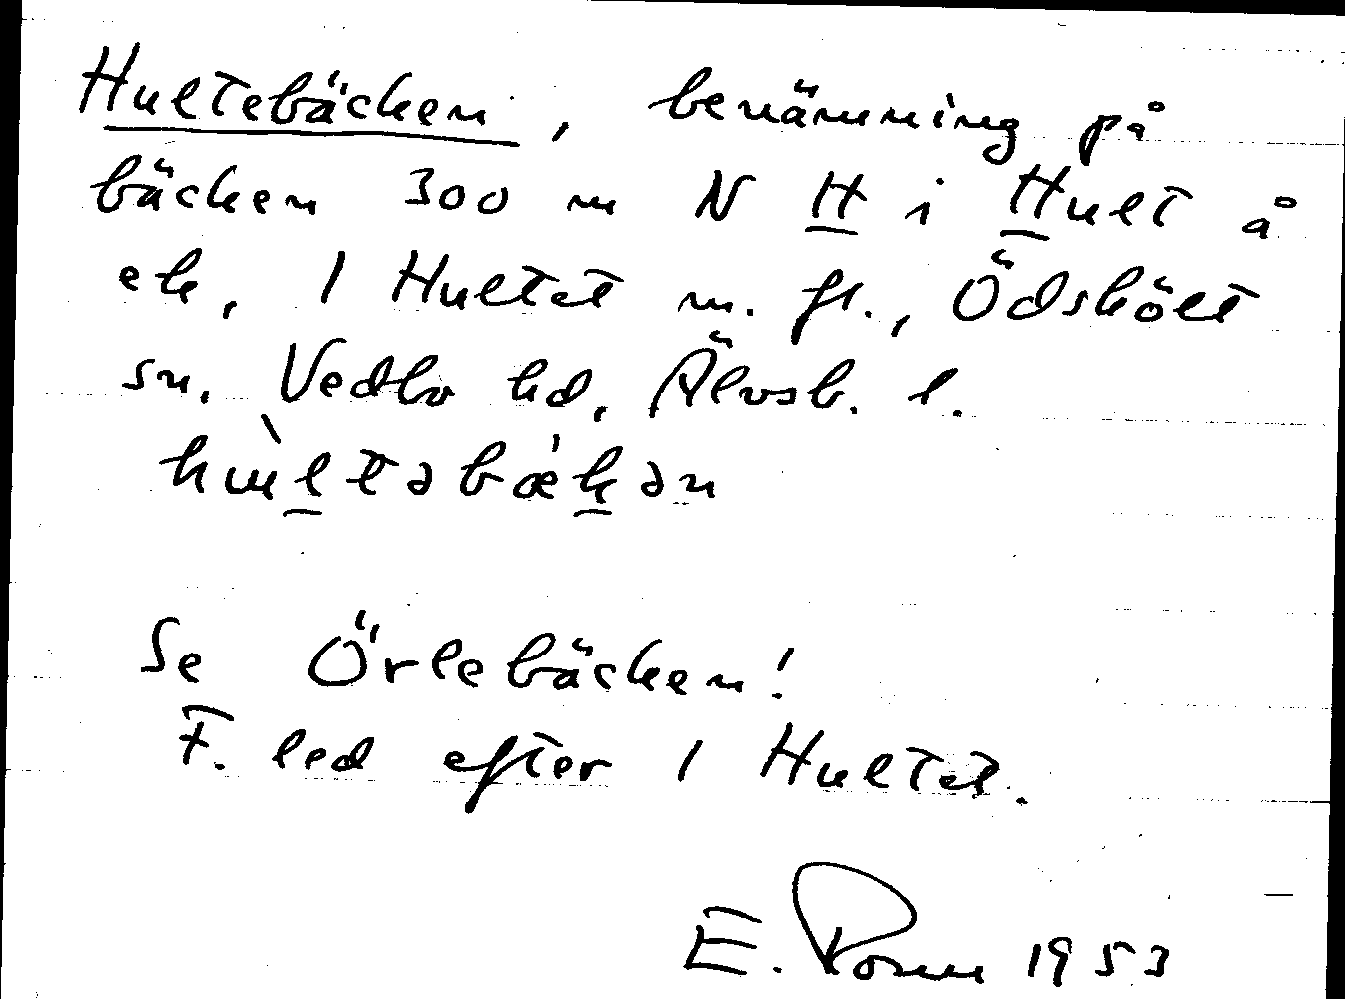 Hultebäcken, benämning på
bäcken 300 m N H i Hult å
ek, 1 Hultet m. fl., Ödskölt
sn. Vedbo hd, Älvsb. l.
Se Örlebäcken!
F. led efter 1 Hultet.
E. 1953